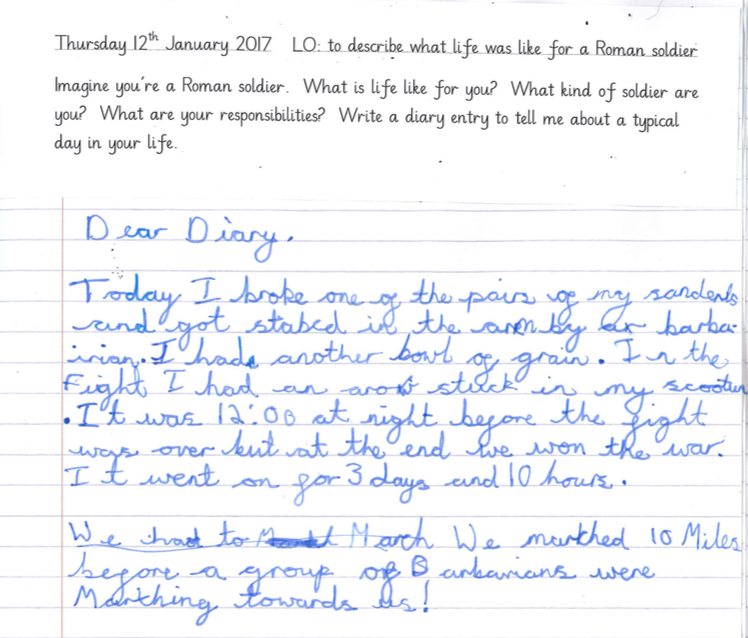 Thursday 12th January 2017 LO: to describe what life was like for a Roman soldier
Imagine you're a Roman soldier. What is life like for you? What kind of soldier are
you? What are your responsibilities? Write a diary entry to tell me about a typical
day in your life.
Dear Diary.
Today I broke one of the pairs of my sandents
and got stabed in the arem by ar barba-
irian. I hade another bowl of grain. In the
Fight I had an arow stuck in my scootun
. It was 12:00 at night before the fight
was over but at the end we won the war.
It went on for 3 days and 10 hours.
We had to March We markhed 10 Miles
before a group of Barbarians were
Markhing towards us!